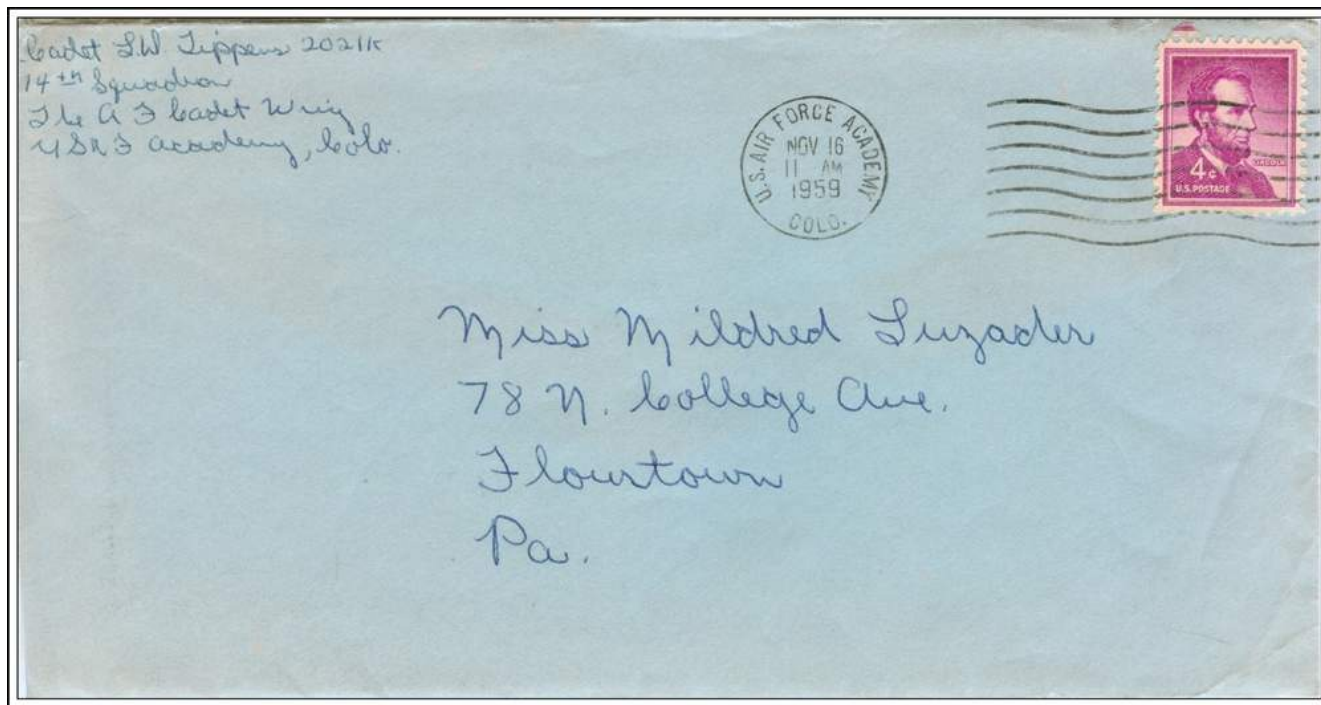 Cadet L.W. Tippens 20211K
14th Squadron
The A F Cadet Wing
USAF Academy, Colo.
U.S. AIR FORCE ACADEMY
NOV 16
11 AM
1959
COLO.
LINCOLN
4¢
U.S. POSTAGE
Miss Mildred Luzader
78 N. College Ave.
Flourtown
Pa.